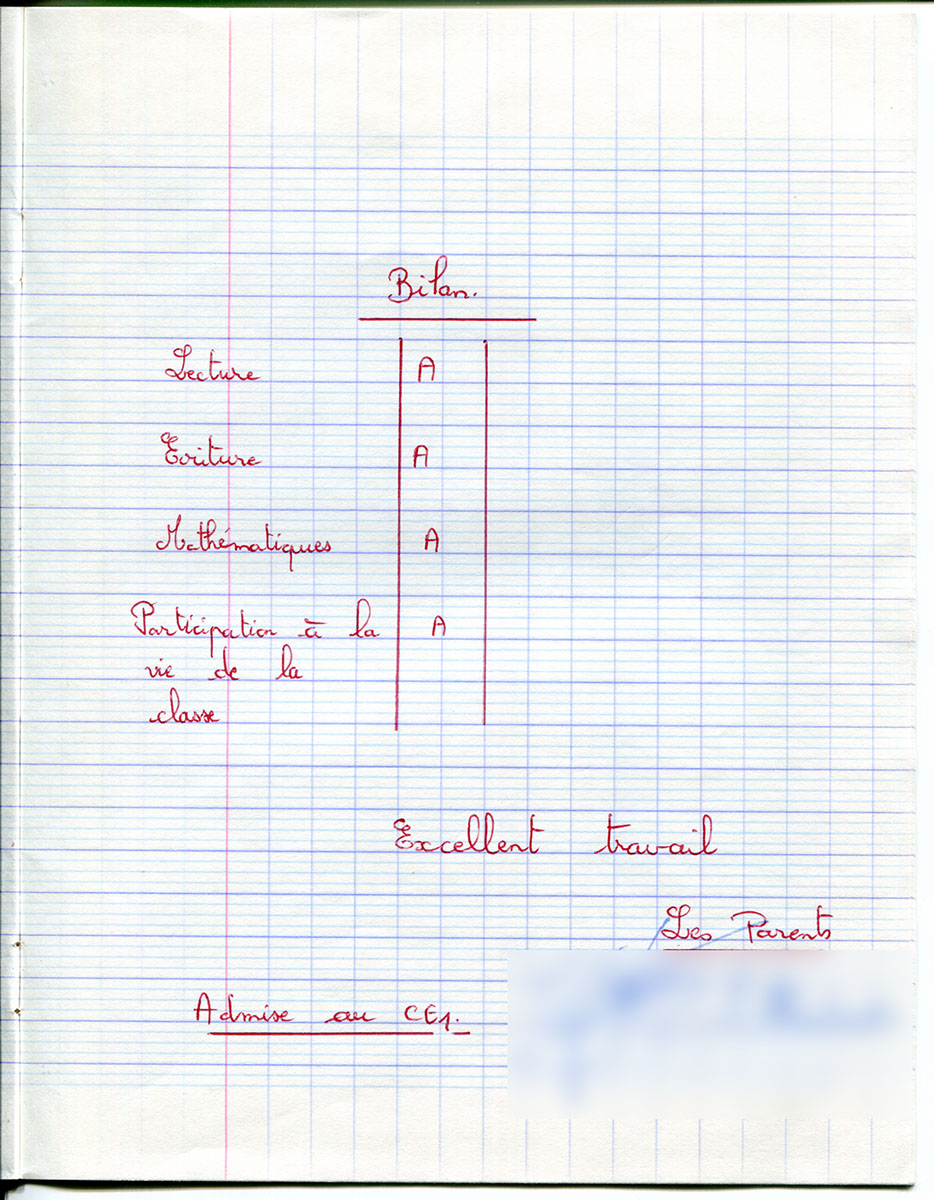 Bilan.
Lecture A
Ecriture A
Mathématiques A
Participation à la A
vie de la
classe
Excellent travail
Les Parents
Admise au CE1.